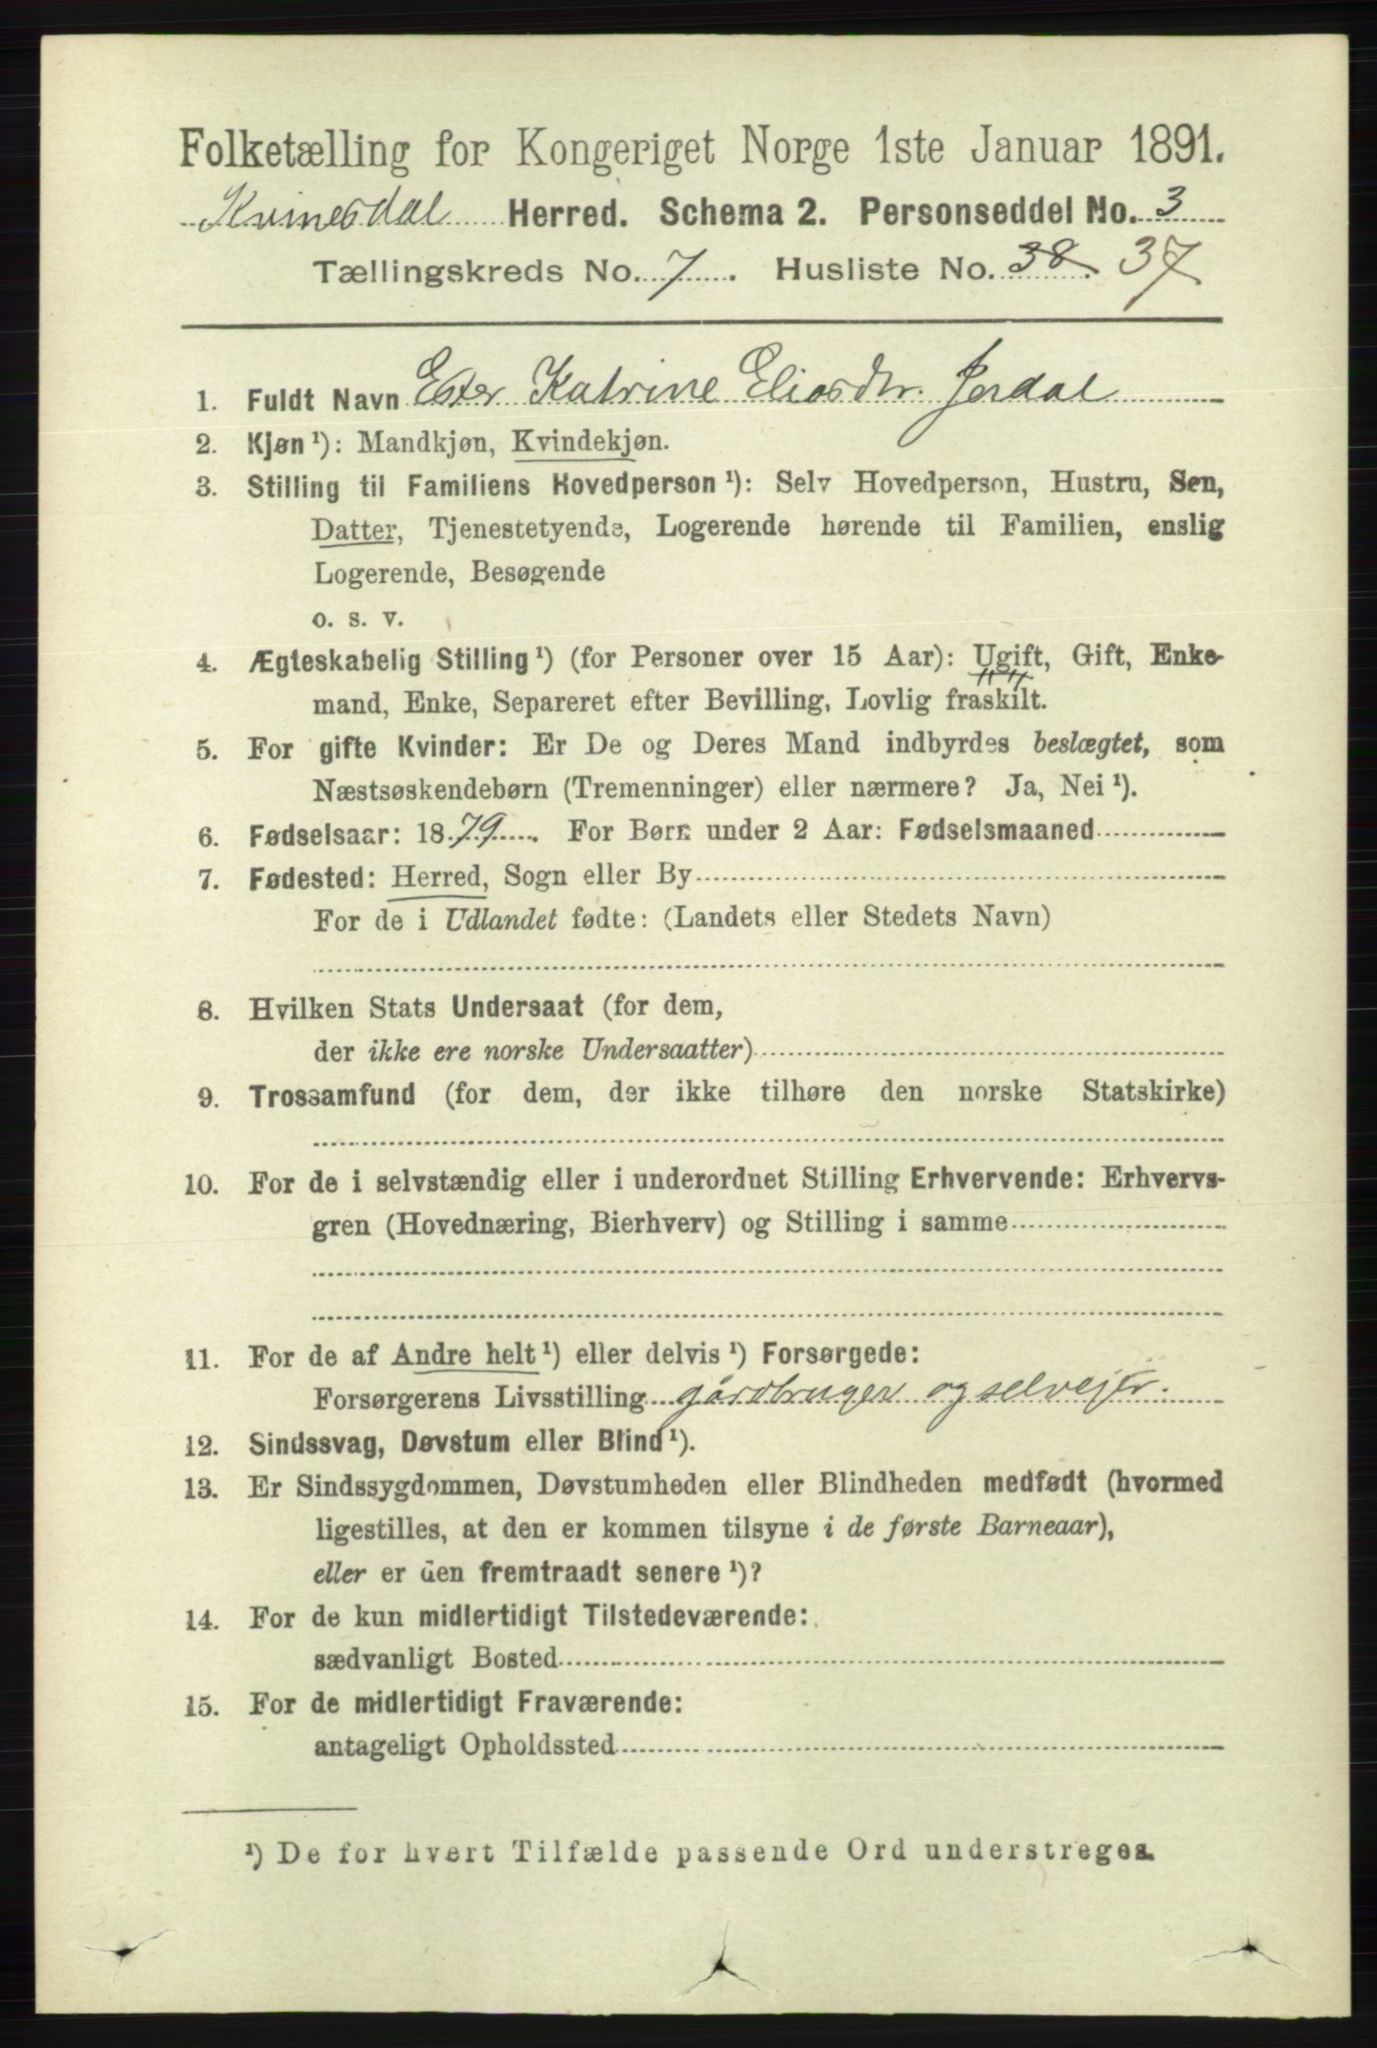 Folketælling for Kongeriget Norge 1ste Januar 1891.
Kvinesdal Herred. Schema 2. Personseddel No. 3
Tællingskreds No. 7. Husliste No. 38. 37
1. Fuldt Navn Ester Katrine Eliasdtr. Jerdal
2. Kjøn ¹): Mandkjøn, Kvindekjøn.
3. Stilling til Familiens Hovedperson ¹): Selv Hovedperson, Hustru, Søn,
Datter, Tjenestetyende, Logerende hørende til Familien, enslig
Logerende, Besøgende
o. s. v.
4. Ægteskabelig Stilling ¹) (for Personer over 15 Aar): Ugift, Gift, Enke-
mand, Enke, Separeret efter Bevilling, Lovlig fraskilt.
5. For gifte Kvinder: Er De og Deres Mand indbyrdes beslægtet, som
Næstsøskendebørn (Tremenninger) eller nærmere? Ja, Nei ¹).
6. Fødselsaar: 1879. For Børn under 2 Aar: Fødselsmaaned
7. Fødested: Herred, Sogn eller By
For de i Udlandet fødte: (Landets eller Stedets Navn)
8. Hvilken Stats Undersaat (for dem,
der ikke ere norske Undersaatter)
9. Trossamfund (for dem, der ikke tilhøre den norske Statskirke)
10. For de i selvstændig eller i underordnet Stilling Erhvervende: Erhvervs-
gren (Hovednæring, Bierhverv) og Stilling i samme
11. For de af Andre helt ¹) eller delvis ¹) Forsørgede:
Forsørgerens Livsstilling gårdbruger og selvejer.
12. Sindssvag, Døvstum eller Blind ¹).
13. Er Sindssygdommen, Døvstumheden eller Blindheden medfødt (hvormed
ligestilles, at den er kommen tilsyne i de første Barneaar),
eller er den fremtraadt senere ¹)?
14. For de kun midlertidigt Tilstedeværende:
sædvanligt Bosted
15. For de midlertidigt Fraværende:
antageligt Opholdssted
¹) De for hvert Tilfælde passende Ord understreges.